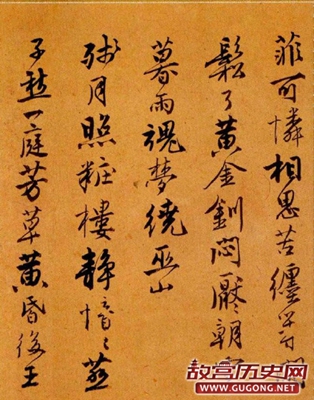 菲可憐相思苦纏等閒
鬆了黃金釧悶厭朝
暮雨魂夢繞巫山
殘月照粧樓靜愔〻燕
子愁一庭芳草黃昏後王
故宫历史网
WWW.GUGONG.NET